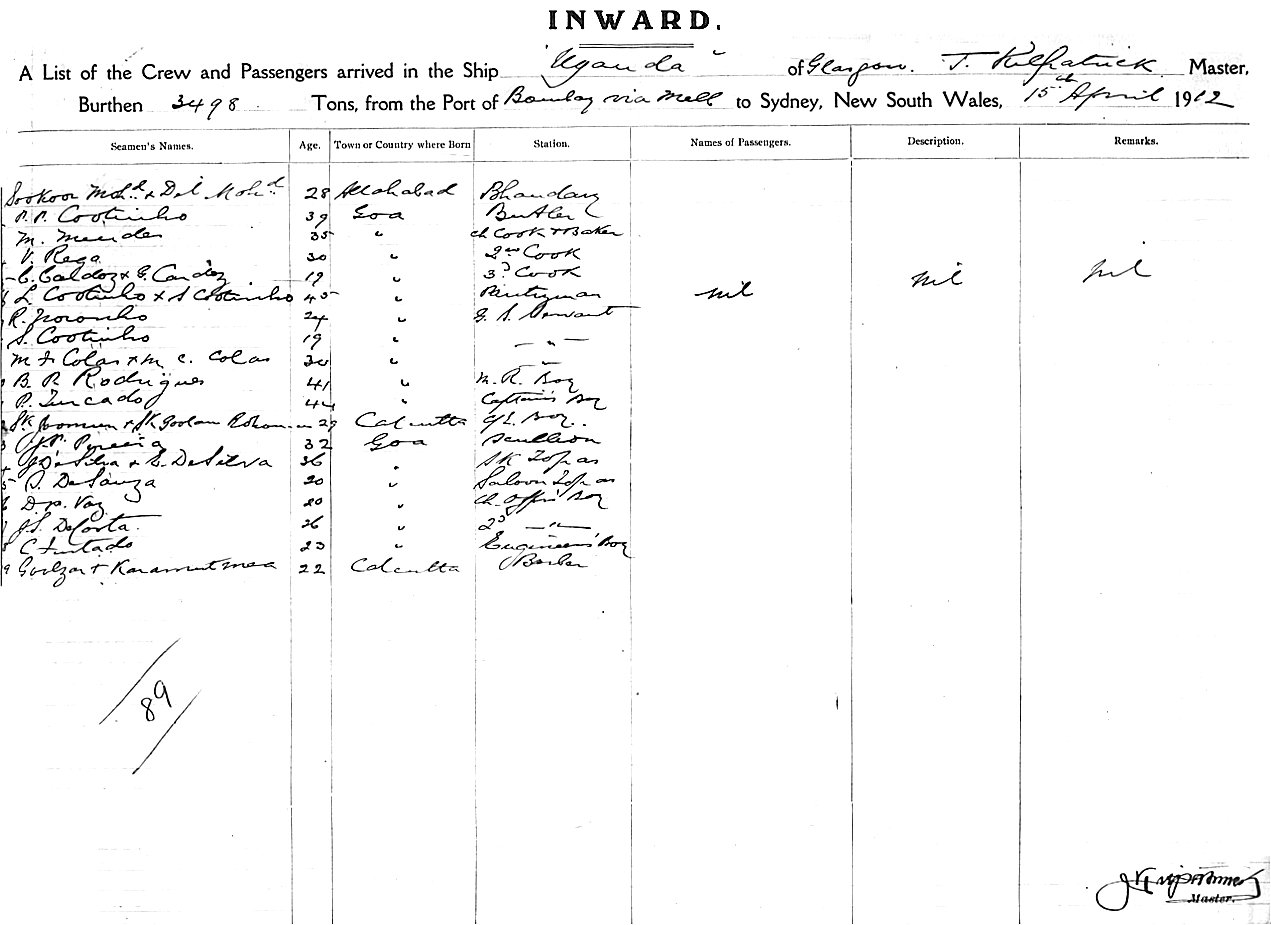 INWARD.
A List of the Crew and Passengers arrived in the Ship "Uganda" of Glasgow. T. Kilpatrick Master,
Burthen 3498 Tons, from the Port of Bombay via Mell to Sydney, New South Wales, 15th April 1912
Seamen's Names. Age. Town or Country where Born Station. Names of Passengers. Description. Remarks.
Sookoor Mohd. + Dil Mohd 28 Allahabad Bhandary
P. P. Cootinho 39 Goa Butler
M. Mendes 35 " Ch Cook + Baker
V. Rega 30 " 2nd Cook
C. Caldoz + G. Cardoz 19 " 3d Cook
L. Cootinho + S Cootinho 45 " Pantryman nil nil nil
R. Noronho 24 " G. S. Servant
S. Cootinho 19 " — " —
M F Colas + M. C. Colas 30 " "
B. R Rodrigues 41 " M. R. Boy
P. Furtado 44 " Captain's Boy
Sk Joomun + Sk Goolam Rohoman 29 Calcutta Boy
J. P. Pereira 32 Goa Scullion
J DeSilva + E. DeSilva 36 " Sk Topas
S. DeSouza 20 " Saloon Topas
D. P. Vaz 20 " Ch. Offrs Boy
J. S. DeCosta. 26 " 2d — " —
C Furtado 23 " Engineers' Boy
9 Goolzar + Karamut Mea 22 Calcutta Barber
89
Master.